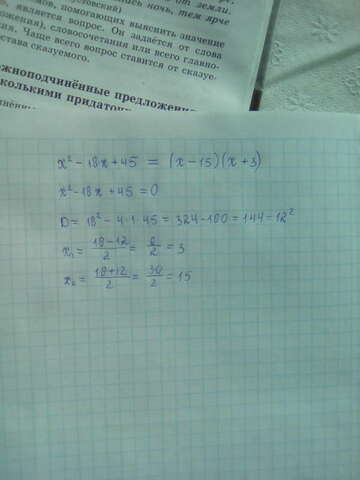 от земли.
ночь, тем ярче
помогающих выяснить значение
является вопрос. Он задаётся от слова
словосочетания или всего главно-
Чаще всего вопрос ставится от сказуе-
става сказуемого.
жноподчинённые предложения
сколькими придаточ
x² - 18x + 45 = (x - 15)(x + 3)
x² - 18x + 45 = 0
D = 18² - 4 · 1 · 45 = 324 - 180 = 144 = 12²
x₁ = (18 - 12)/2 = 6/2 = 3
x₂ = (18 + 12)/2 = 30/2 = 15